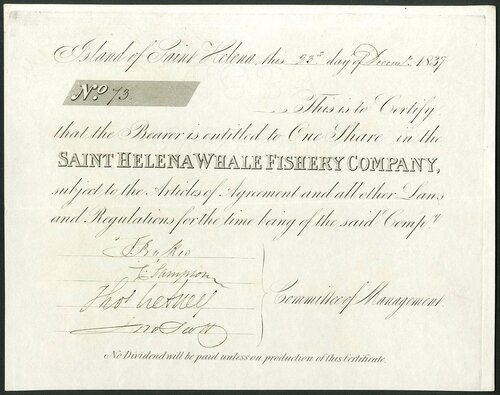 Island of Saint Helena, this 23d day of Decemr. 1837
No. 73.
This is to Certify
that the Bearer is entitled to One Share in the
SAINT HELENA WHALE FISHERY COMPANY,
subject to the Articles of Agreement and all other Laws
and Regulations for the time being of the said Compy
Committee of Management
No Dividend will be paid unless on production of this Certificate.